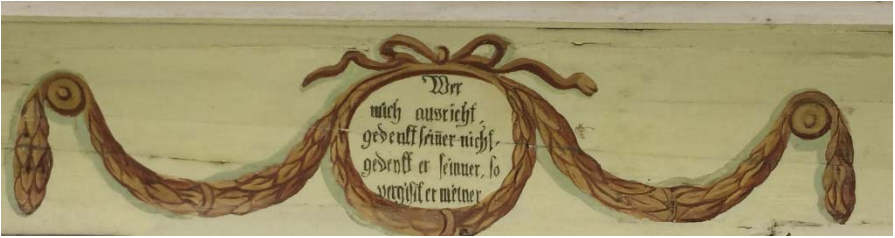 Wer
mich ausricht,
gedenkt seiner nicht,
gedenkt er seinner, so
vergisst er meiner